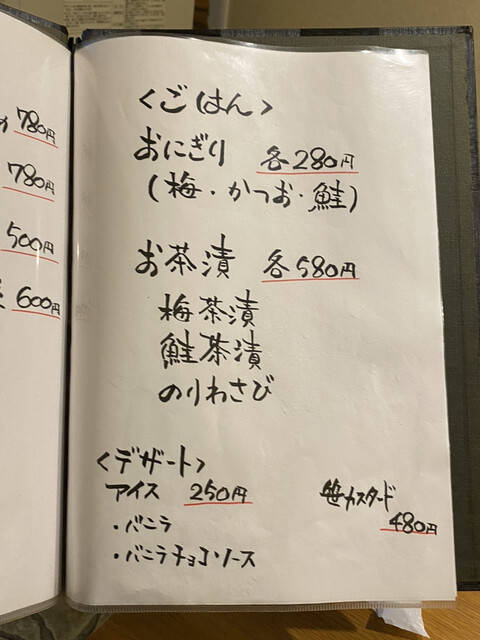 780円
780円
500円
600円
<ごはん>
おにぎり 各280円
(梅・かつお・鮭)
お茶漬 各580円
梅茶漬
鮭茶漬
のりわさび
<デザート>
アイス 250円
・バニラ
・バニラチョコソース
笹カスタード
480円